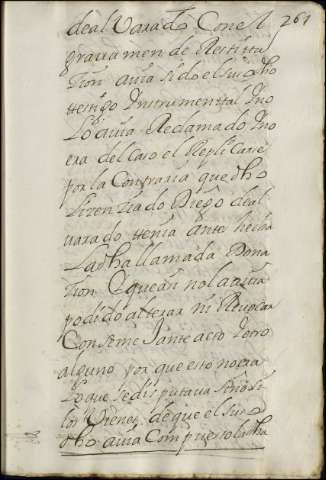 261
de alvarado Con el
gravamen de Restitu
cion avia sido el suso dho
testigo Instrumental Y no
Lo avia Reclamado Y no
era del caso el Replicarse
por la Contraria que dho
Lizenziado Diego de al
varado tenia ante hecha
La dha llamada Dona
cion Y que an no la avia
podido alterar ni Revocar
Con semejante acto Y otro
alguno por que esto no era
Lo que se disputava sino si
los Vienes de que el suso
dho avia Compuesto la dha